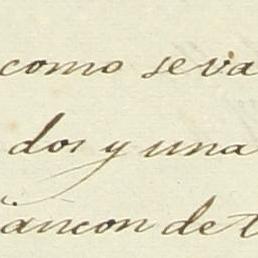 como se va
dos y una
ancon de t